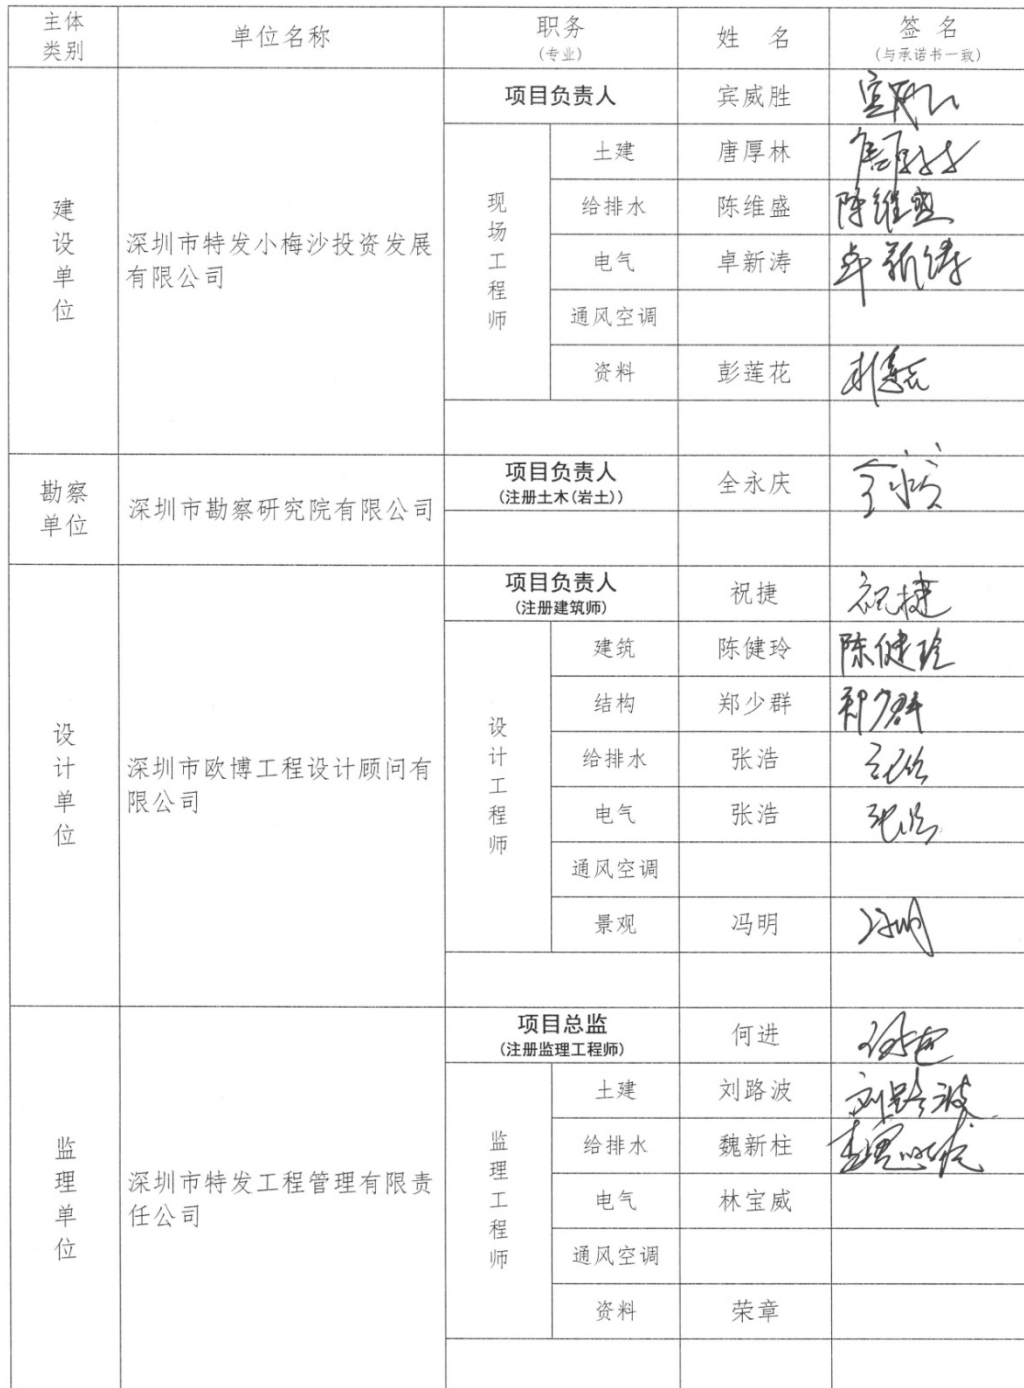 主体
类别
单位名称
职务
(专业)
姓 名
签 名
(与承诺书一致)
建设单位
深圳市特发小梅沙投资发展
有限公司
项目负责人
宾威胜
现场工程师
土建
唐厚林
给排水
陈维盛
陈维盛
电气
卓新涛
卓新涛
通风空调
资料
彭莲花
勘察
单位
深圳市勘察研究院有限公司
项目负责人
(注册土木(岩土))
全永庆
设计单位
深圳市欧博工程设计顾问有
限公司
项目负责人
(注册建筑师)
祝捷
祝捷
设计工程师
建筑
陈健玲
陈健玲
结构
郑少群
郑少群
给排水
张浩
电气
张浩
张浩
通风空调
景观
冯明
冯明
监理单位
深圳市特发工程管理有限责
任公司
项目总监
(注册监理工程师)
何进
监理工程师
土建
刘路波
刘路波
给排水
魏新柱
电气
林宝威
通风空调
资料
荣章